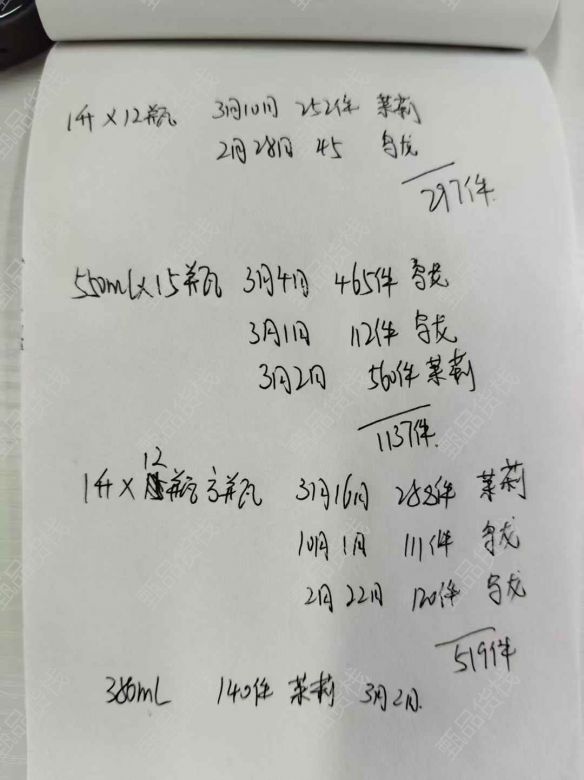 1升×12瓶 3月10日 252件 茉莉
2月28日 45 乌龙
297件
550mL×15瓶 3月4日 465件 乌龙
3月1日 112件 乌龙
3月2日 560件 茉莉
1137件
1升×12瓶方瓶 3月16日 288件 茉莉
10月1日 111件 乌龙
2月22日 120件 乌龙
519件
380mL 140件 茉莉 3月2日
甄品货栈